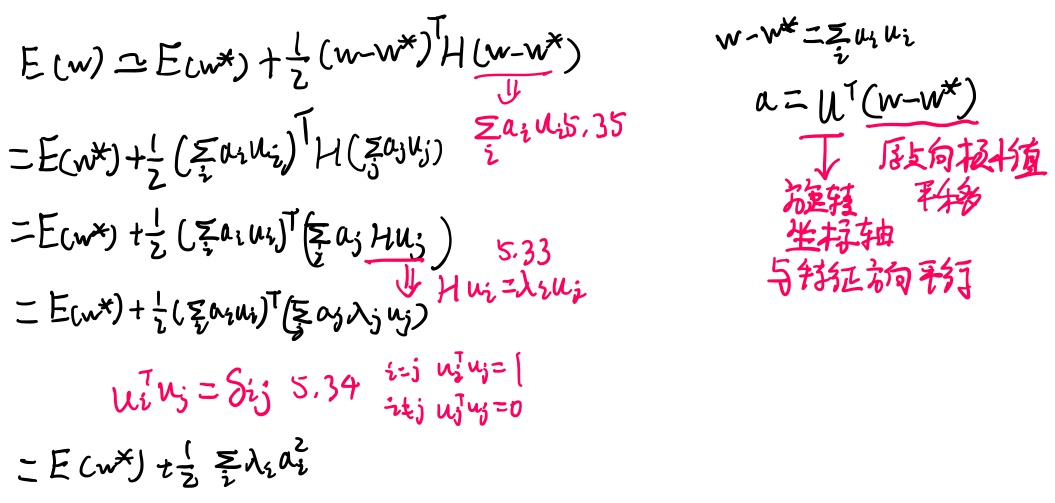 E(w) ≃ E(w*) + 1/2 (w-w*)ᵀH(w-w*)
⇓
∑ᵢ aᵢuᵢ 5.35
= E(w*) + 1/2 (∑ᵢ aᵢuᵢ)ᵀH(∑ⱼ aⱼuⱼ)
= E(w*) + 1/2 (∑ᵢ aᵢuᵢ)ᵀ(∑ⱼ aⱼ Huⱼ)
⇓
5.33
Huᵢ = λᵢuᵢ
= E(w*) + 1/2 (∑ᵢ aᵢuᵢ)ᵀ(∑ⱼ aⱼλⱼuⱼ)
uᵢᵀuⱼ = δᵢⱼ 5.34
i=j uᵢᵀuⱼ = 1
i≠j uᵢᵀuⱼ = 0
= E(w*) + 1/2 ∑ᵢ λᵢaᵢ²
w-w* = ∑ᵢ aᵢuᵢ
a = Uᵀ(w-w*)
原点向极小值
平移
旋转
坐标轴
与特征方向平行